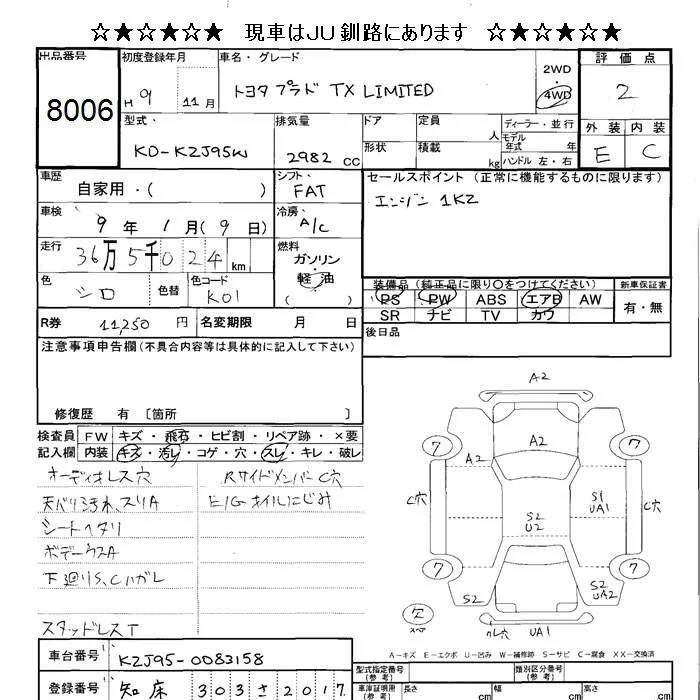 ☆★☆★☆★ 現車はJU釧路にあります ☆★☆★☆★
出品番号 初度登録年月 車名・グレード 評価点
8006 H 9 11月 トヨタ プラド TX LIMITED 2WD・4WD 2
型式: 排気量 ドア 定員 人 ディーラー・並行 外装 内装
KD-KZJ95W 2982 CC 形状 積載 kg モデル年式 年 ハンドル 左・右 E C
車歴 自家用・( ) シフト: FAT セールスポイント (正常に機能するものに限ります)
車検 9年 1月(9日) 冷房: A/C エンジン 1KZ
走行 36万5千024 km 燃料 ガソリン 軽油 ( )
色 シロ 色替 色コード K01
装備品 (純正品に限り○をつけてください) 新車保証書
PS PW ABS エアB AW 有・無
SR ナビ TV カワ
R券 11,250 円 名変期限 月 日 後日品
注意事項申告欄(不具合内容等は具体的に記入して下さい)
修復歴 有 〔箇所 〕
検査員 FW キズ・飛石・ヒビ割・リペア跡・×要
記入欄 内装 キズ・汚レ・コゲ・穴・スレ・キレ・破レ
オーディオレス穴 RサイドメンバーC穴
天バリ汚れ、スリA E/Gオイルにじみ
シートヘタリ
ボデーウスA
下廻りS、Cハガレ
スタッドレスT
A2
A2
7 7
A2
C穴 S1 UA1 C穴
S2 U2
7 7
S2 S2 UA2
欠 スペア クレ穴 UA1
A-キズ E-エクボ U-凹み W-補修跡 S-サビ C-腐食 XX-交換済
車台番号 KZJ95-0083158
型式指定番号 (参考) 類別区分番号 (参考)
登録番号 知床 303 さ 2017
車庫証明用 (参考) 長さ cm 幅 cm 高さ cm